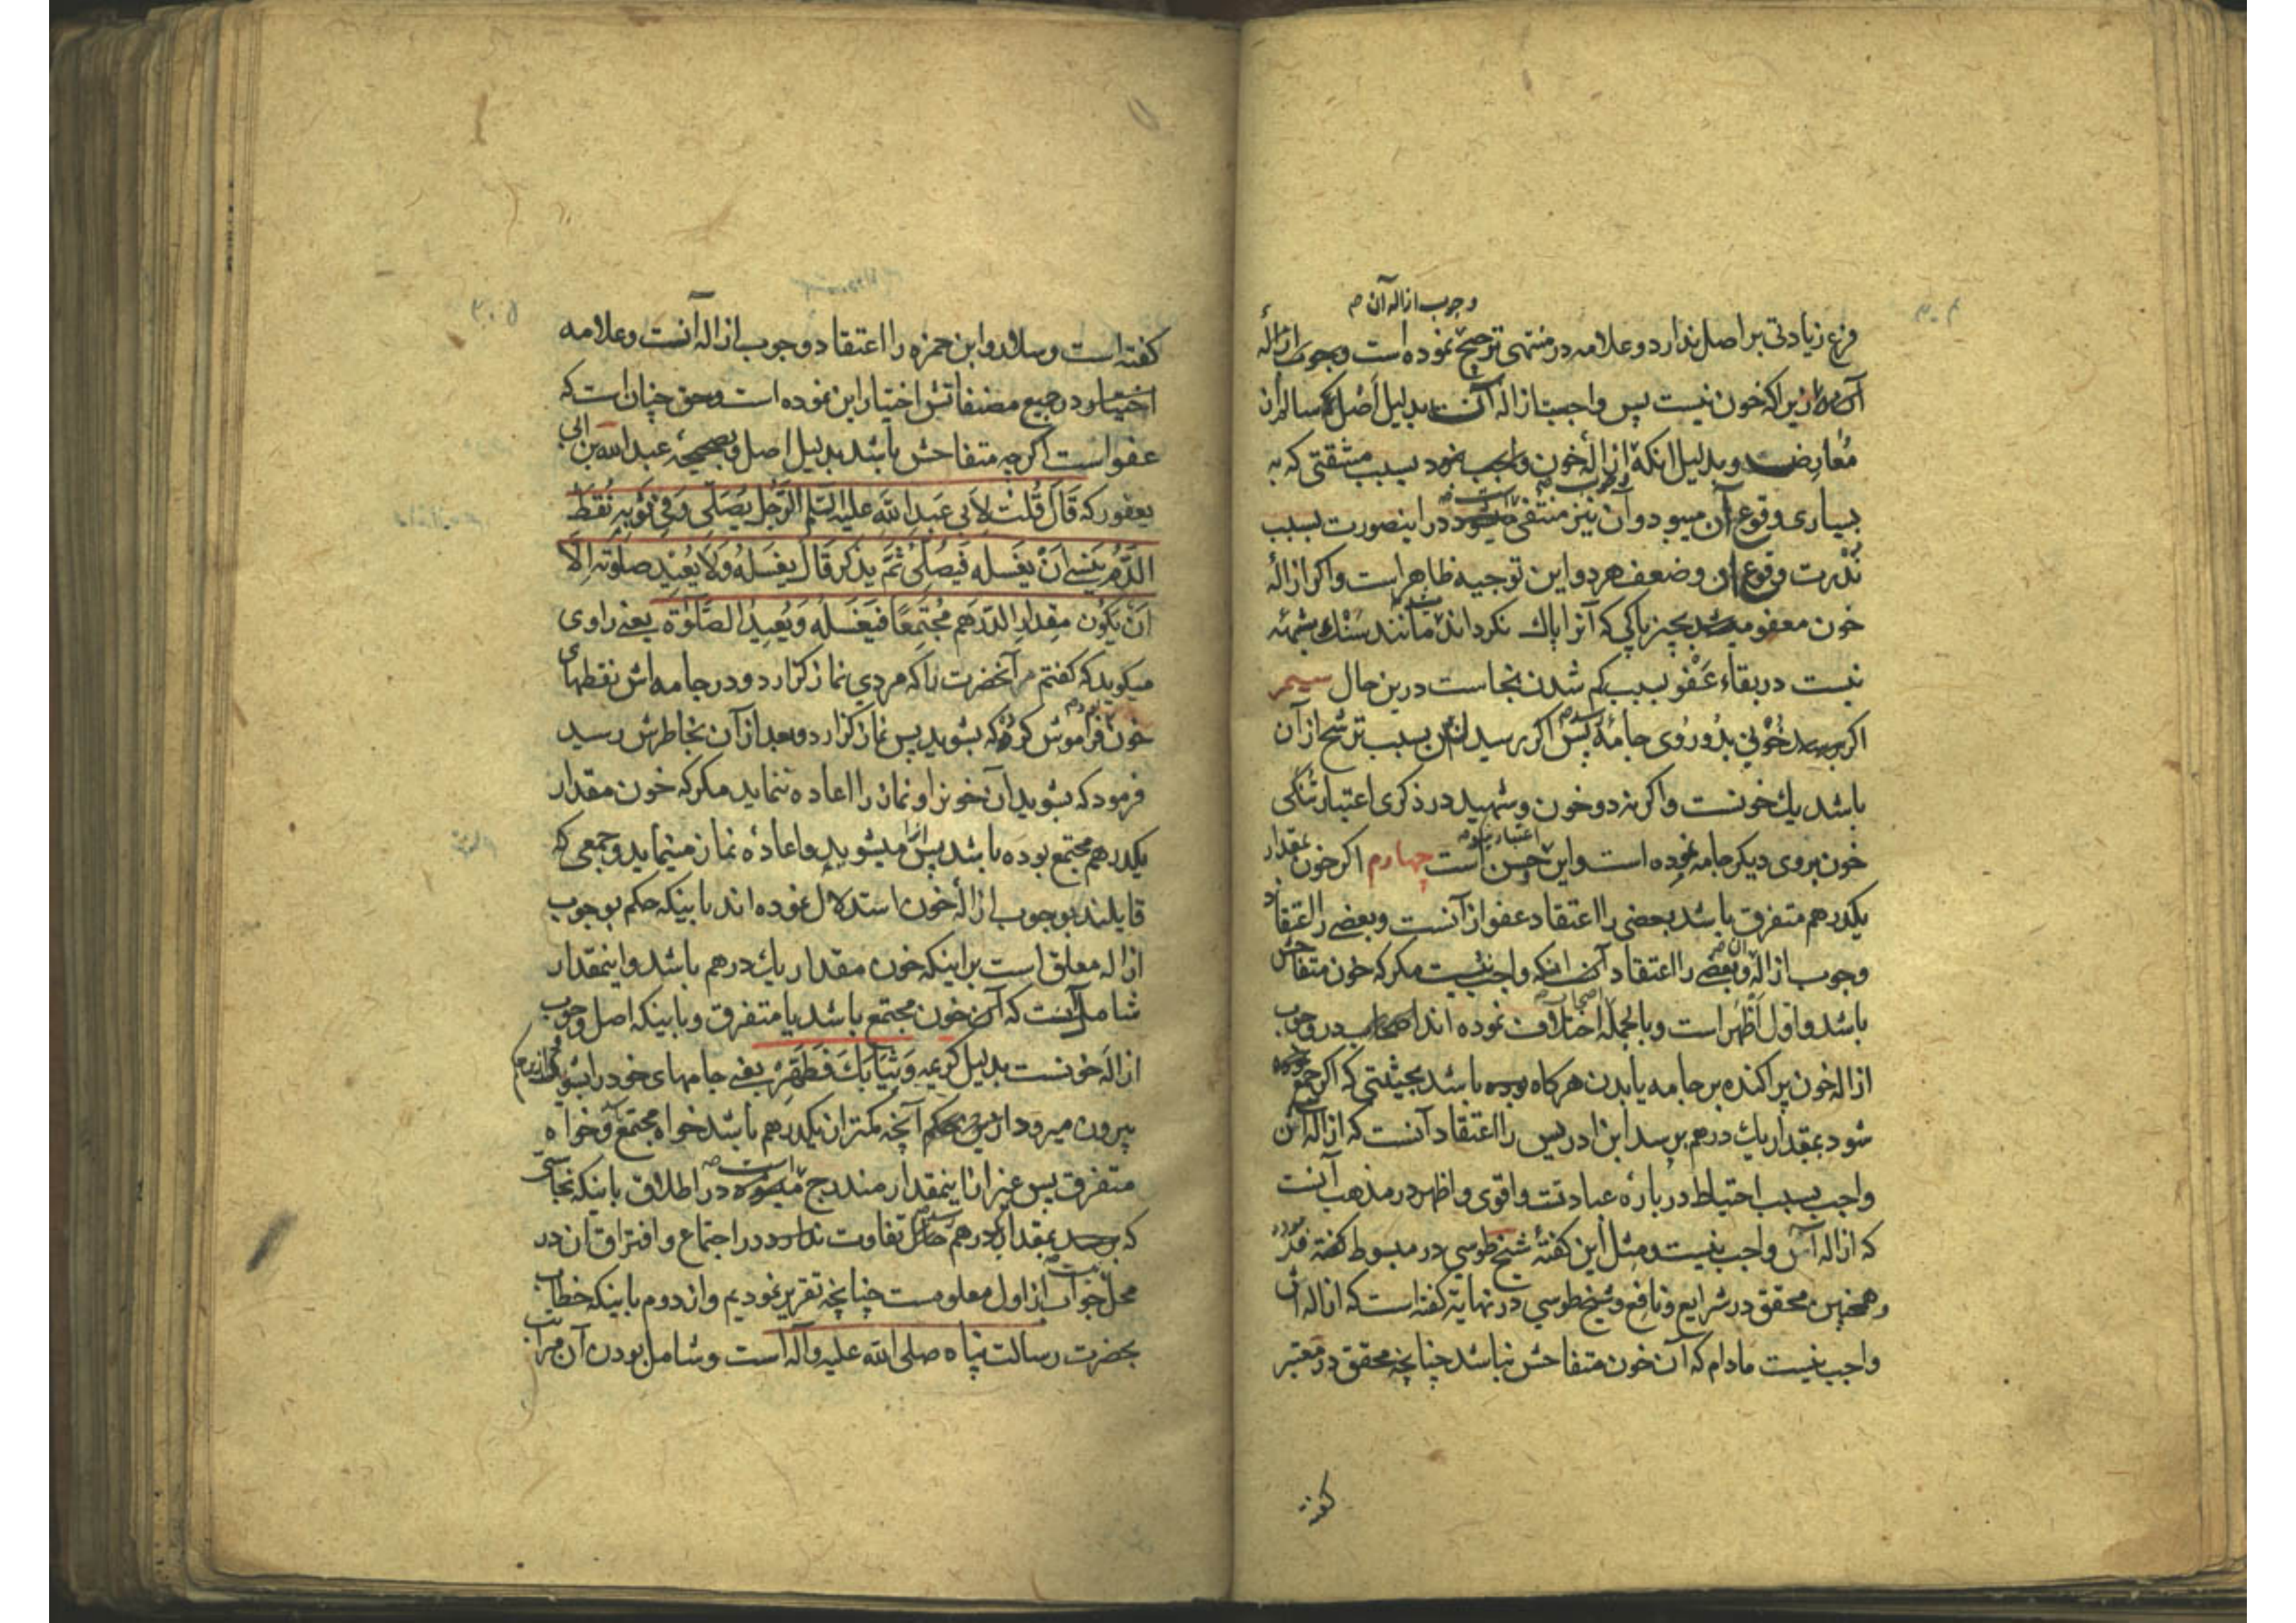 وجوب ازاله آن صح
فرع زیادتی بر اصل ندارد و علامه در منتهی ترجیح نموده است وجوب ازالهٔ
آن را زیرا که خون نیست پس واجبست ازاله آن بدلیل اصل که سالم از
معارضست و بدلیل آنکه ازالهٔ خون واجب نبود بسبب مشقتی که به
بسیاری وقوع آن میبود و آن نیز منتفی است در اینصورت بسبب
ندرت وقوع آن و ضعف هر دو این توجیه ظاهر است و اگر ازالهٔ
خون معفو شد بچیز پاکی که آنرا پاك نکرداند مانند سنك شبهئه
نیست در بقاء عفو بسبب کم شدن نجاست درین حال سیم
اگر برسد خونی بدو روی جامه پس اگر رسیدن آن بسبب ترشح از آن
باشد یك خونست و اگر نه دو خون و شهید در ذکری اعتبار تنکی
خون بروی دیگر جامه نموده است و این اعتبار حسن است چهارم اگر خون بمقدار
یکدرهم متفرق باشد بعضی را اعتقاد عفو از آنست و بعضی را اعتقاد
وجوب ازاله و بعضی را اعتقاد آن اینکه واجب نیست مکر که خون متفاحش
باشد و اول اظهر است و بالجمله اصحاب اختلاف نموده اند در وجوب
ازاله خون پراکنده بر جامه یا بدن هرگاه بوده باشد بحیثیتی که اگر جمع
شود بمقدار یك درهم برسد ابن ادریس را اعتقاد آنست که ازاله آن
واجب بسبب احتیاط در بارهٔ عبادتست و اقوی و اظهر در مذهب آنست
که ازاله آن واجب نیست و مثل این کفتهٔ شیخ طوسی در مبسوط کفته
و همچنین محقق در شرایع و نافع و شیخ طوسی در نهایة کفته است که ازاله آن
واجب نیست مادام که آن خون متفاحش نباشد چنانچه محقق در معتبر
کفته
کفته است و سلار و ابن حمزه را اعتقاد وجوب ازاله آنست و علامه
در جمیع مصنفاتش اختیار این نموده است و حق چنان است که
عفو است اگر چه متفاحش باشد بدلیل اصل و بصحیحهٔ عبدالله بن ابی
یعفور که قَالَ قُلتُ لِاَبی عَبدِ اللهِ علیه السلم الرَّجُل یُصَلّی وَفی ثَوبِهِ نُقَط
الدَّمِ یَنسی اَنْ یَغسله فَیُصَلّی ثمَّ یذکر قَالَ یغسله وَلا یُعید صلوته اِلّا
اَنْ یَکُون مِقدار الدّرهَم مُجتَمِعًا فیَغسله وَیُعِیدُ الصَّلوٰة یعنی راوی
میکوید که کفتم مر آنحضرت را که مردی نماز گزارد و در جامه اش نقطهای
خون فراموش کرد که بشوید پس نماز گزارد و بعد از آن بخاطرش رسید
فرمود که بشوید آن خونرا و نماز را اعاده ننماید مکر که خون مقدار
یکدرهم مجتمع بوده باشد پس آنرا میشوید و اعادهٔ نماز مینماید و جمعی که
قایلند بوجوب ازالهٔ خون استدلال نموده اند باینکه حکم بوجوب
ازاله معلق است بر اینکه خون مقدار یك درهم باشد و اینمقدار
شامل آنست که آن خون مجتمع باشد یا متفرق و باینکه اصل وجوب
ازاله خونست بدلیل کریمه وَثِیَابَكَ فَطَهِّرْ یعنی جامهای خود را بشوی
بیرون میرود ازین حکم آنچه کمتر از یکدرهم باشد خواه مجتمع و خواه
متفرق پس غیر از اینمقدار مندرج است در اطلاق باینکه نجاستی
که بمقدار درهم تفاوت ندارد در اجتماع و افتراق آن در
محل جواب از اول معلومست چنانچه تقریر نمودیم و از دوم باینکه خطاب
بحضرت رسالت پناه صلی الله علیه و آله است و شامل بودن آن